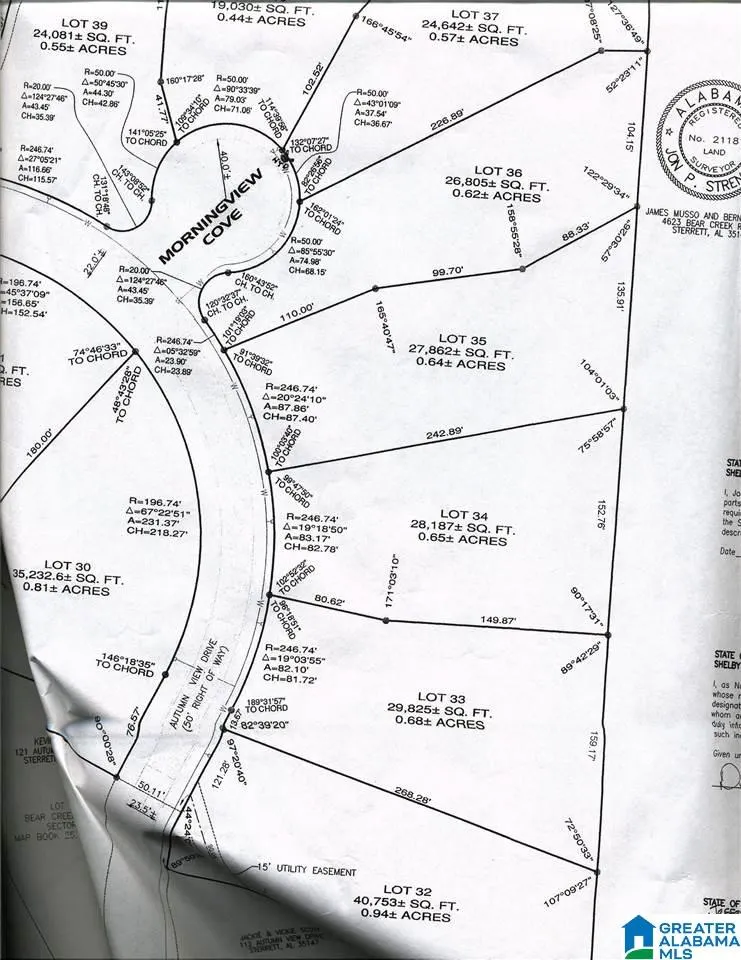 LOT 39
24,081± SQ. FT.
0.55± ACRES
19,030± SQ. FT.
0.44± ACRES
LOT 37
24,642± SQ. FT.
0.57± ACRES
166°45'54"
127°36'49"
52°23'11"
R=20.00'
Δ=124°27'46"
A=43.45
CH=35.39
R=50.00'
Δ=50°45'30"
A=44.30
CH=42.86
160°17'28"
41.77'
TO CHORD
141°05'25"
TO CHORD
R=50.00'
Δ=90°33'39"
A=79.03
CH=71.06
114°39'56"
TO CHORD
102.52'
R=50.00'
Δ=43°01'09"
A=37.54
CH=36.67
132°07'27"
TO CHORD
82°29'56"
TO CHORD
226.89'
104.15
ALABAMA
REGISTERED
No. 2118
LAND
SURVEYOR
JON P. STREN
R=246.74'
Δ=27°05'21"
A=116.66'
CH=115.57'
131°18'48"
CH. TO CH.
143°08'52"
CH. TO CH.
40.0'±
MORNINGVIEW
COVE
LOT 36
26,805± SQ. FT.
0.62± ACRES
122°29'34"
57°30'26"
JAMES MUSSO AND BERN
4623 BEAR CREEK R
STERRETT, AL 351
162°01'24"
TO CHORD
158°55'28"
88.33'
R=50.00'
Δ=85°55'30"
A=74.98'
CH=68.15'
22.0'±
R=20.00'
Δ=124°27'46"
A=43.45
CH=35.39'
160°43'52"
CH. TO CH.
120°32'37"
CH. TO CH.
99.70'
110.00'
165°40'47"
135.91'
=196.74'
=45°37'09"
=156.65'
H=152.54'
R=246.74'
Δ=05°32'59"
A=23.90'
CH=23.89'
101°19'03"
TO CHORD
91°39'32"
TO CHORD
LOT 35
27,862± SQ. FT.
0.64± ACRES
74°46'33"
TO CHORD
48°43'28"
TO CHORD
180.00'
R=246.74'
Δ=20°24'10"
A=87.86'
CH=87.40'
104°01'03"
75°58'57"
100°03'40"
TO CHORD
242.89'
99°47'50"
TO CHORD
R=196.74'
Δ=67°22'51"
A=231.37'
CH=218.27'
R=246.74'
Δ=19°18'50"
A=83.17'
CH=82.78'
LOT 34
28,187± SQ. FT.
0.65± ACRES
152.76'
LOT 30
35,232.6± SQ. FT.
0.81± ACRES
102°52'32"
TO CHORD
80.62'
171°03'10"
149.87'
90°17'31"
89°42'29"
96°18'51"
TO CHORD
R=246.74'
Δ=19°03'55"
A=82.10'
CH=81.72'
146°18'35"
TO CHORD
AUTUMN VIEW DRIVE
(50' RIGHT OF WAY)
189°31'57"
TO CHORD
13.67
82°39'20"
LOT 33
29,825± SQ. FT.
0.68± ACRES
159.17'
76.57'
90°00'28"
97°20'40"
121.28'
268.28'
50.11'
23.5'±
72°50'33"
107°09'27"
15' UTILITY EASEMENT
LOT 32
40,753± SQ. FT.
0.94± ACRES
KEVI
121 AUTUM
STERRET
LOT
BEAR CREE
SECTOR
MAP BOOK
JACKIE & VICKIE
113 AUTUMN VIEW DRIVE
STERRETT, AL 35147
STAT
SHEL
I, Jo
parts
requir
the S
descr
Date
STATE
SHELBY
I, as No
whose n
designat
whom a
duly info
such ins
Given un
STATE OF
GREATER
ALABAMA
MLS